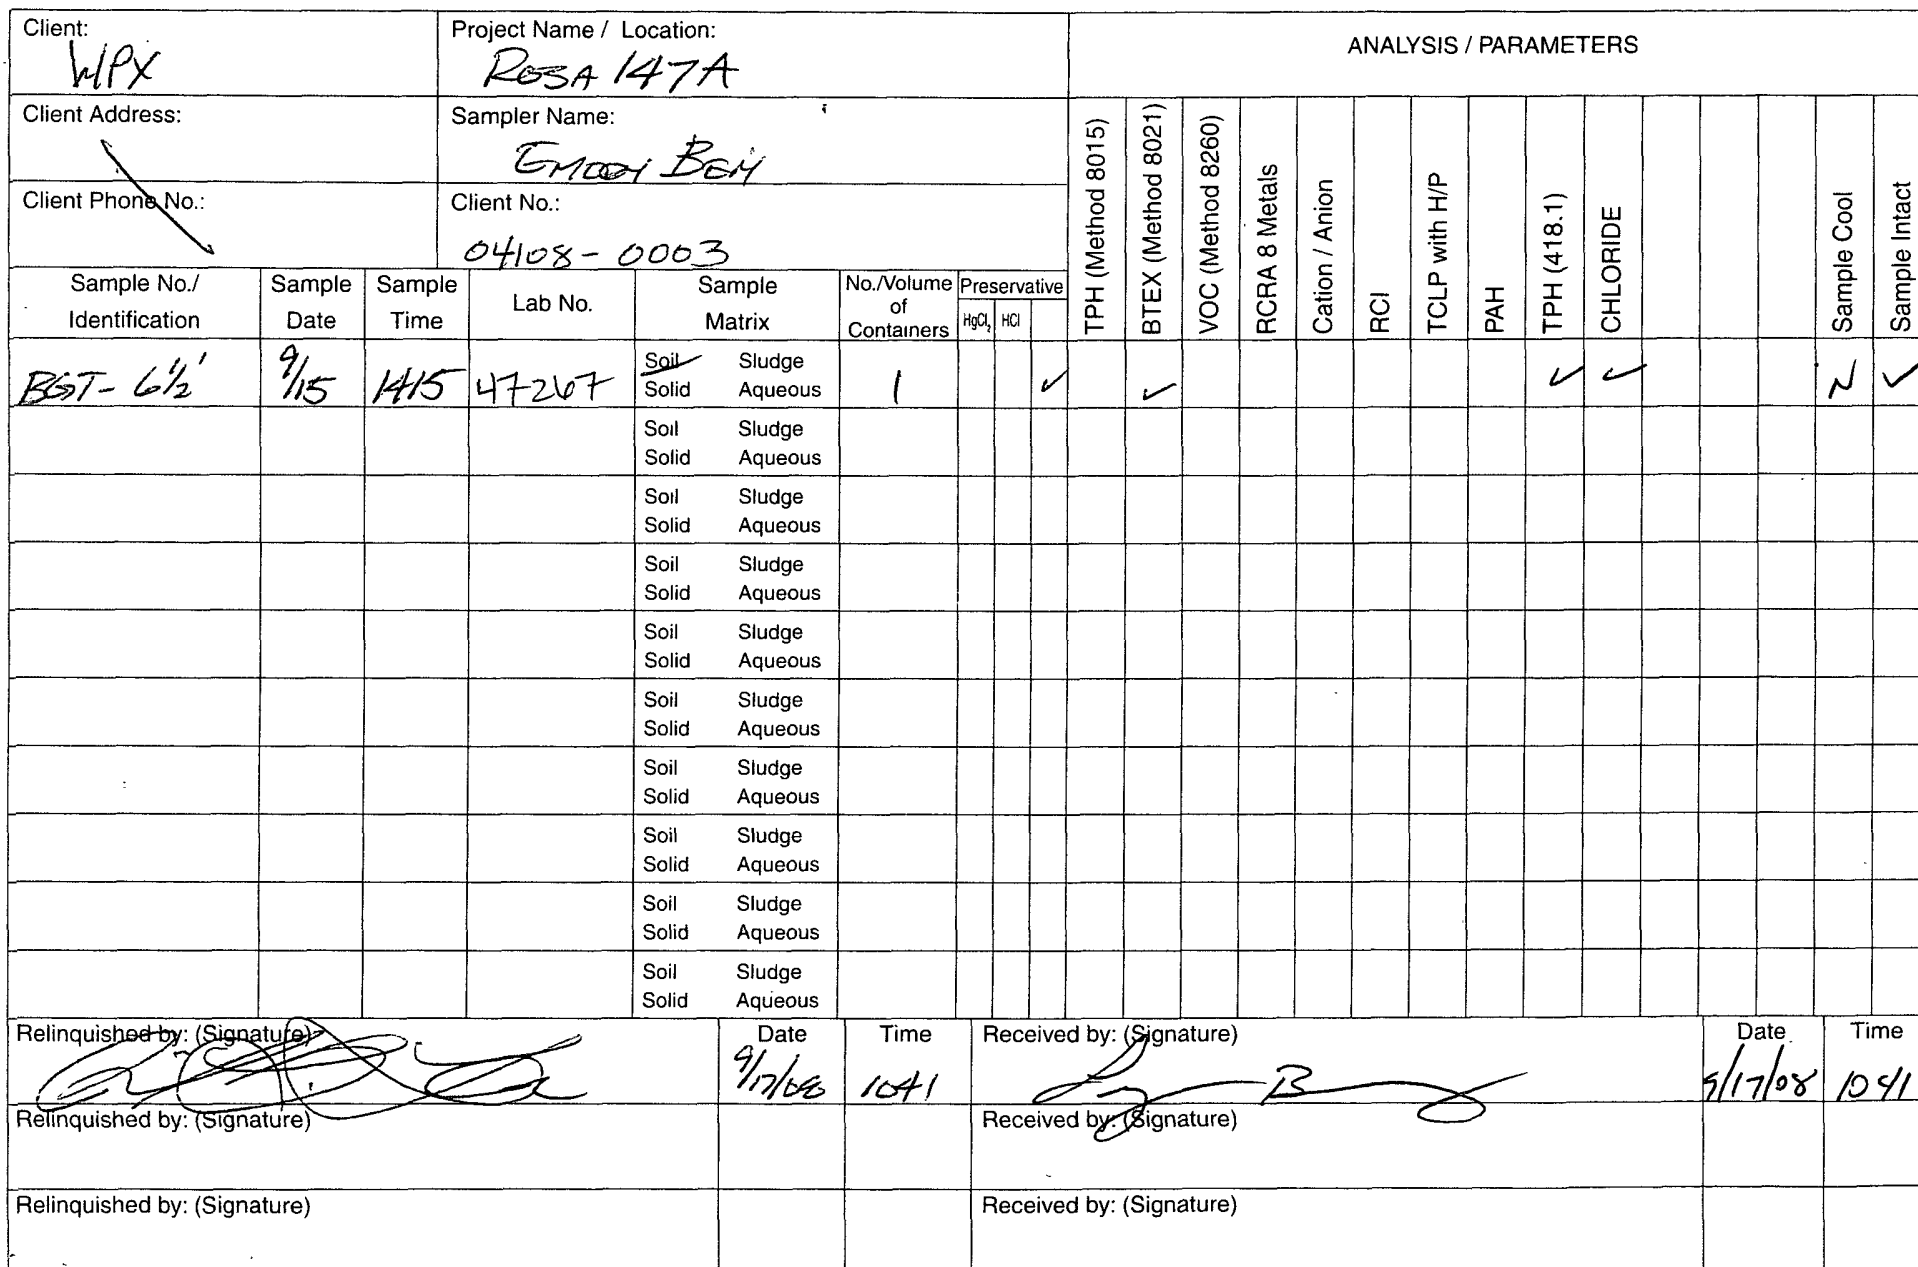 Client:
WPX
Project Name / Location:
ROSA 147A
ANALYSIS / PARAMETERS
Client Address:
Sampler Name:
Client Phone No.:
Client No.:
04108-0003
Sample No./
Identification
Sample
Date
Sample
Time
Lab No.
Sample
Matrix
No./Volume
of
Containers
Preservative
HgCl₂ HCl
TPH (Method 8015)
BTEX (Method 8021)
VOC (Method 8260)
RCRA 8 Metals
Cation / Anion
RCI
TCLP with H/P
PAH
TPH (418.1)
CHLORIDE
Sample Cool
Sample Intact
BGT- 6½' 9/15 1415 47267 Soil Sludge 1 ✓ ✓ ✓ ✓ N ✓
Solid Aqueous
Soil Sludge
Solid Aqueous
Soil Sludge
Solid Aqueous
Soil Sludge
Solid Aqueous
Soil Sludge
Solid Aqueous
Soil Sludge
Solid Aqueous
Soil Sludge
Solid Aqueous
Soil Sludge
Solid Aqueous
Soil Sludge
Solid Aqueous
Soil Sludge
Solid Aqueous
Relinquished by: (Signature) Date Time Received by: (Signature) Date Time
9/17/08 1041 9/17/08 1041
Relinquished by: (Signature) Received by: (Signature)
Relinquished by: (Signature) Received by: (Signature)